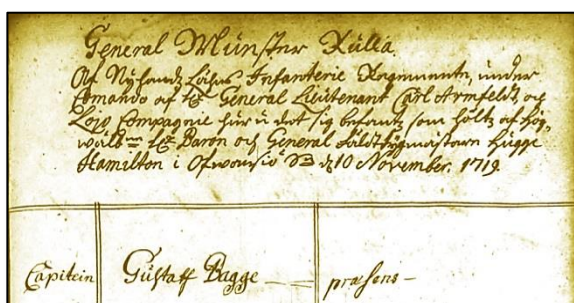 General Münster Rulla
Af Nylandz Löhns Infanterie Regemente, under
Comando af H: General Lieutenant Carl Armfeldt, och
Lojo Compagnie huru det sig befants som höltz af
wälb: H: Baron och General Hugge
Hamilton i d: 10 November. 1719.
Capitein Gustaff Bagge præsens